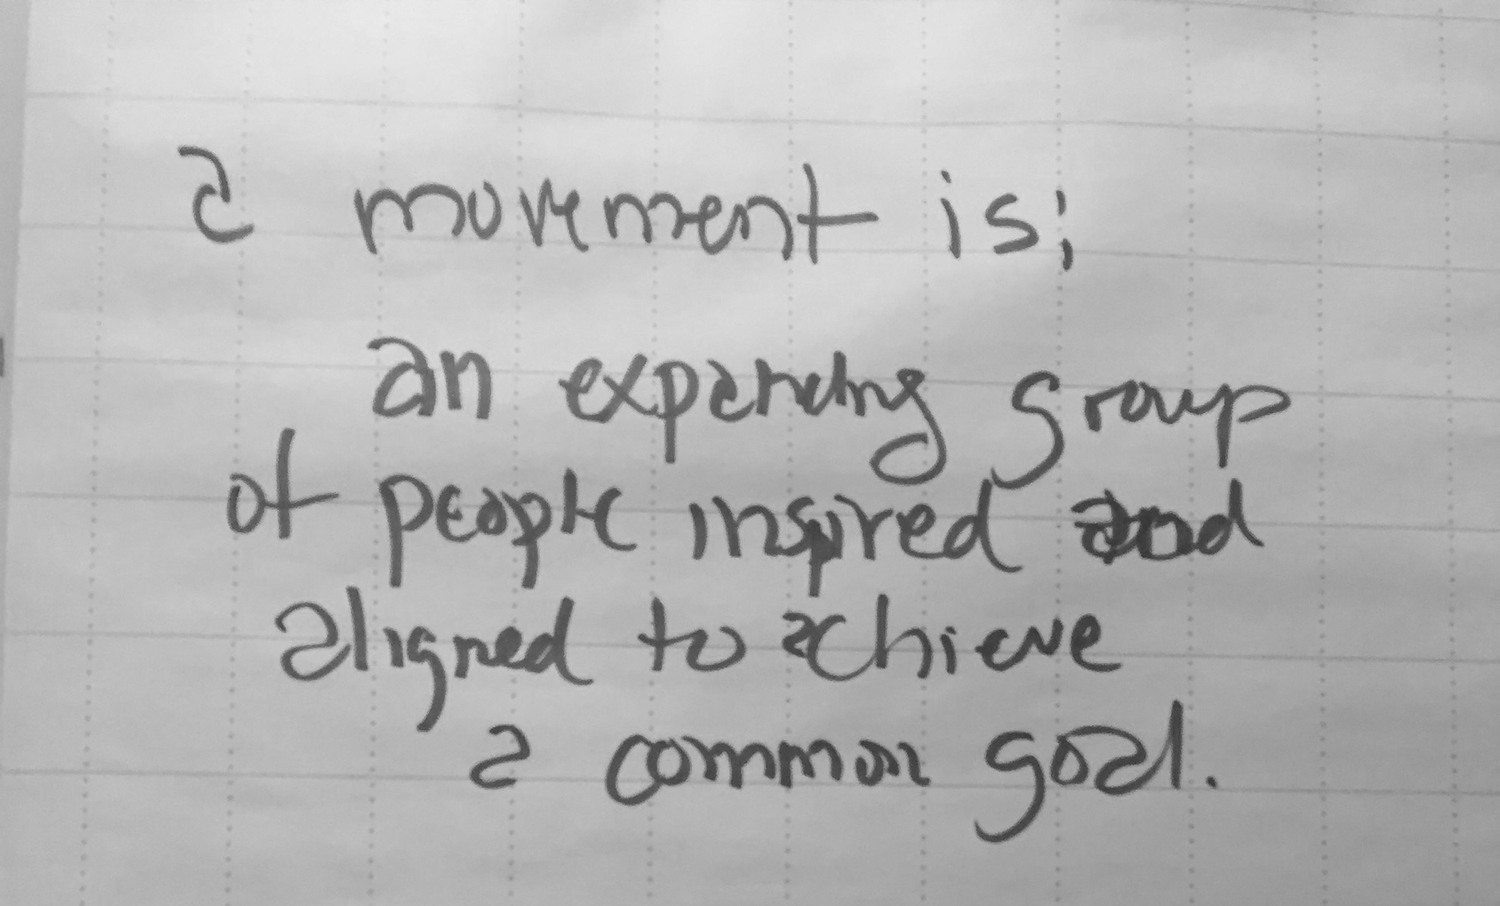 a movement is;
an expanding group
of people inspired and
aligned to achieve
a common goal.